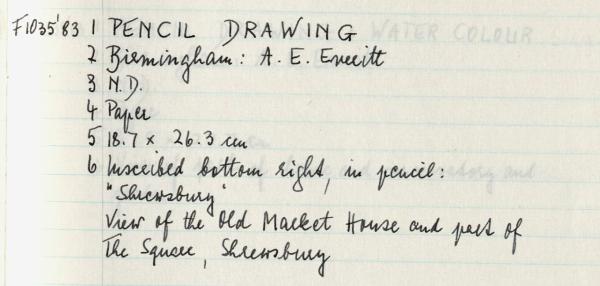 F1035'83 1 PENCIL DRAWING
2 Birmingham: A. E. Everitt
3 N.D.
4 Paper
5 18.7 x 26.3 cm
6 Inscribed bottom right, in pencil:
"Shrewsbury"
View of the Old Market House and part of
The Square, Shrewsbury